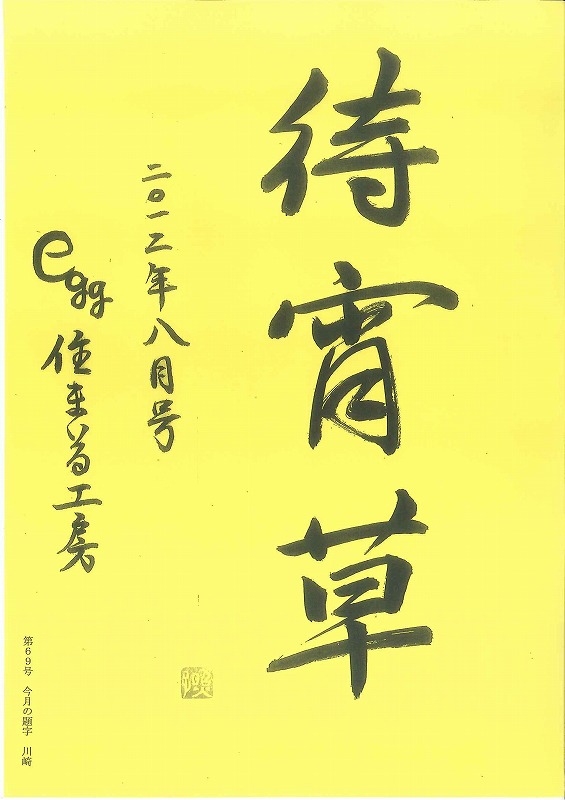 待宵草
二〇一二年八月号
egg 住まいる工房
第69号　今月の題字　川崎